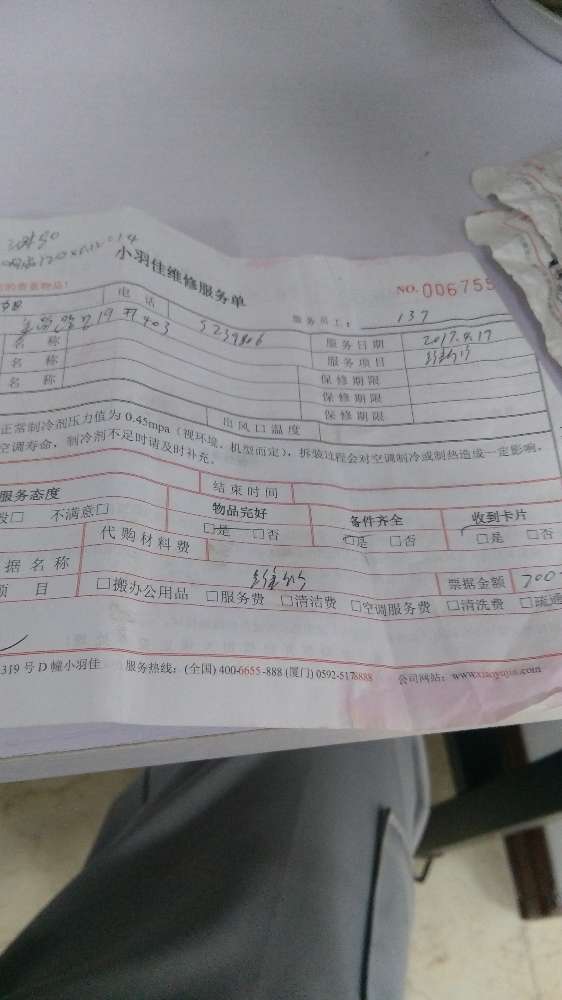 小羽佳维修服务单
NO. 006755
电 话 服务员工： 137
5239806 服务日期 2017.9.17
名 称 服务项目
名 称 保修期限
名 称 保修期限
保修期限
出风口温度
正常制冷剂压力值为 0.45mpa（视环境、机型而定），拆装过程会对空调制冷或制热造成一定影响，
空调寿命，制冷剂不足时请及时补充。
结束时间
服务态度 物品完好 备件齐全 收到卡片
般□ 不满意□ □是 □否 □是 □否 □是 □否
代购材料费
据名称 票据金额 700
项 目 □搬办公用品 □服务费 □清洁费 □空调服务费 □清洗费 □疏通
319 号 D 幢小羽佳 服务热线：(全国) 400-6655-888 (厦门) 0592-5178888 公司网站：www.xiaoyujia.com